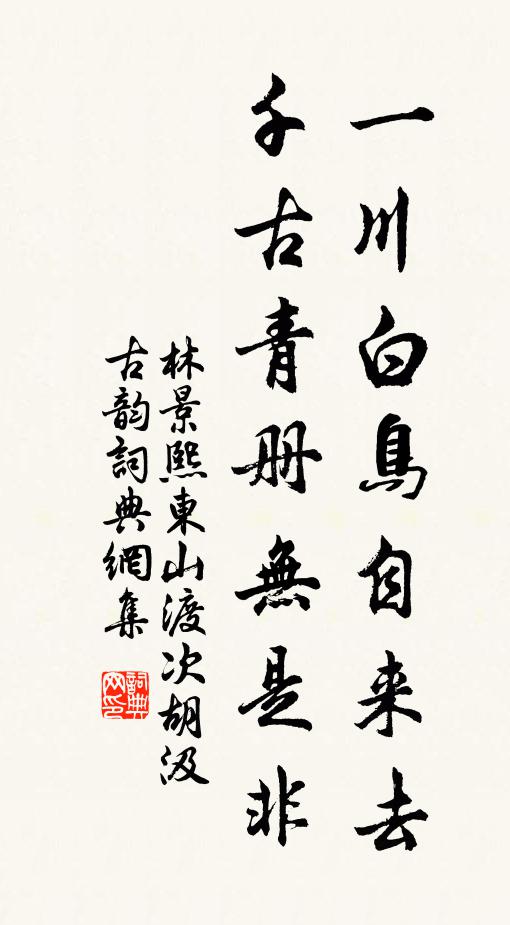 一川白鳥自来去
千古青册無是非
林景熙東山渡次胡汲
古韵詞典網集
詞典网印